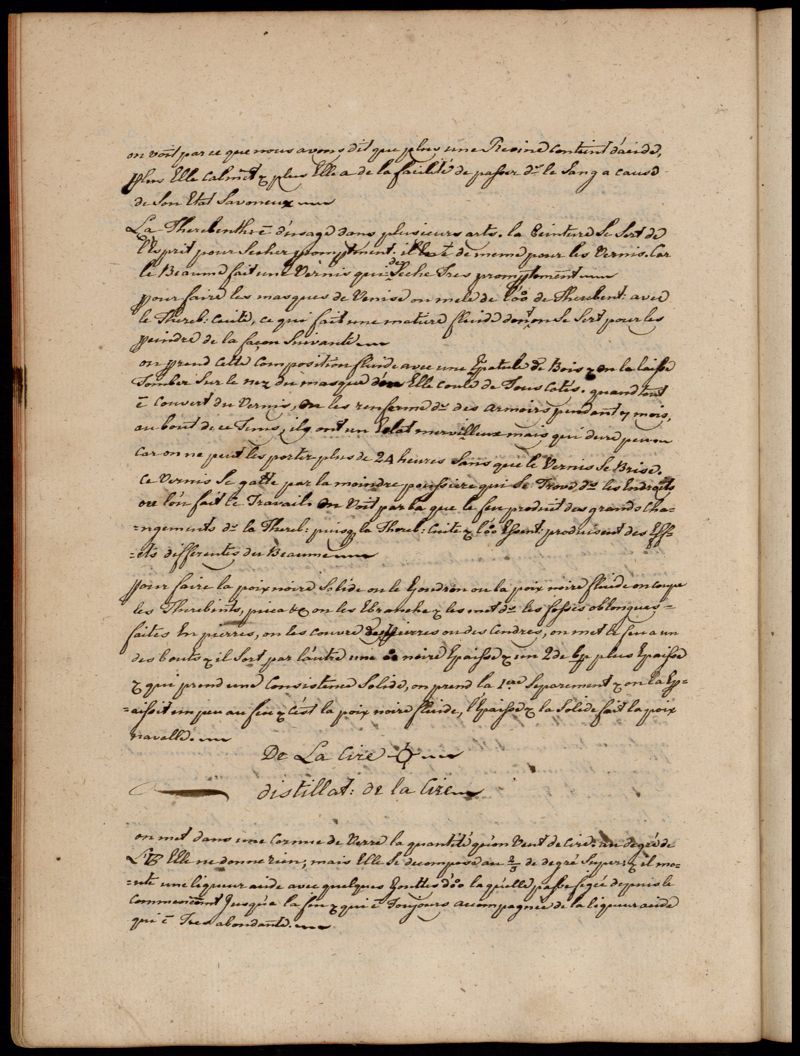 on voit par ce que nous avons dit que plus une Resine contient d'acide,
plus Elle calme & plus Elle a de la facilité de passer ds. le Sang a cause
de Son Etat Savoneux
La Therebenthe ē d'usage dans plusieurs arts. la Peinture Se Sert de
l'Esprit pour Secher promptment. il de meme pour les Vernis. Car
le Beaume fait une Vernis qui Seche Tres promptement
pour faire les masques de Venise on mele de l'oo de Therebent: avec
le Thereb: Cuite, ce qui fait une matiere fluide dont on Se Sert pour les
peindre de la façon Suivante
on prend cette Composition fluide avec une Epatule de Bois & on la laisse
Tomber Sur le nez du masque d'ou Elle coule de Tous Cotés. quand tout
ē Couvert du Vernis, on les renferme ds. des armoirs pendant 7 mois,
au bout de ce Tems, ils ont un Eclat merveilleux mais qui dure peu
Car on ne peut les porter plus de 24 heures Sans que le Vernis Se Brise.
Ce Vernis Se gatte par la moindre poussiere qui Se Trouve ds. les Endroits
ou l'on fait ce Travail. On Voit par la que le feu produit des grands Cha=
=ngements ds. la Thereb: puisq la Thereb: Cuite & l'oo Essent: produisent des Eff=
=ets differents du Beaume
pour faire la poix noire Solide ou le Goudron ou la poix noire fluide on coupe
les Therebints, picea &c on les Ebranche & les met ds. les fosses oblongues=
faites En pierres, on les couvre de pierres ou des Cendres, on met le feu a un
des bouts & il Sort par l'autre une oo noire Epaisse & un 2de plus Epaisse
& qui prend une Consistence Solide, on prend la 1ere Separement & on la Ep=
=aissit un peu au feu & c'ést la poix noire fluide, l'Epaisse & la Solide fait la poix
navalle.
De La Cire
distillat: de la Cire
on met dans une Cornue de Verre la quantité qu'on Veut de Cire. au degré de
Elle ne donne rien; mais Elle Se decompose au 2/3 de degré Super: & il mo=
=nte une liqueur acide avec quelques Gouttes d'oo laquelle passe figée depuis le
Commencemt Jusqu'a la fin & qui ē Toujours accompagnée de la liqueur acide
qui ē Tres abondante.